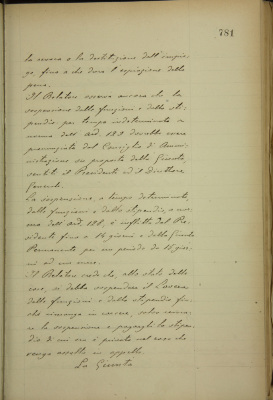 781
la revoca o la destituzione dell'impie-
go fino a che dura l'espiazione della
pena.
Il Relatore osserva ancora che la
sospensione dalle funzioni e dallo sti-
pendio per tempo indeterminato a
norma dell'art. 189 dovrebbe essere
pronunziata dal Consiglio di Ammi-
nistrazione su proposta della Giunta,
sentiti il Presidente ed il Direttore
Generale.
La sospensione a tempo determinato
dalle funzioni e dallo stipendio, a nor-
ma dell'art. 188, è inflitta dal Pre-
sidente fino a 15 giorni e dalla Giunta
Permanente per un periodo da 15 gior-
ni ad un mese.
Il Relatore crede che, allo stato delle
cose, si debba sospendere il
dalle funzioni e dallo stipendio fin-
chè rimanga in carcere, salvo
la sospensione e pagargli lo stipen-
dio di cui era privato nel caso che
venga assolto in appello.
La Giunta